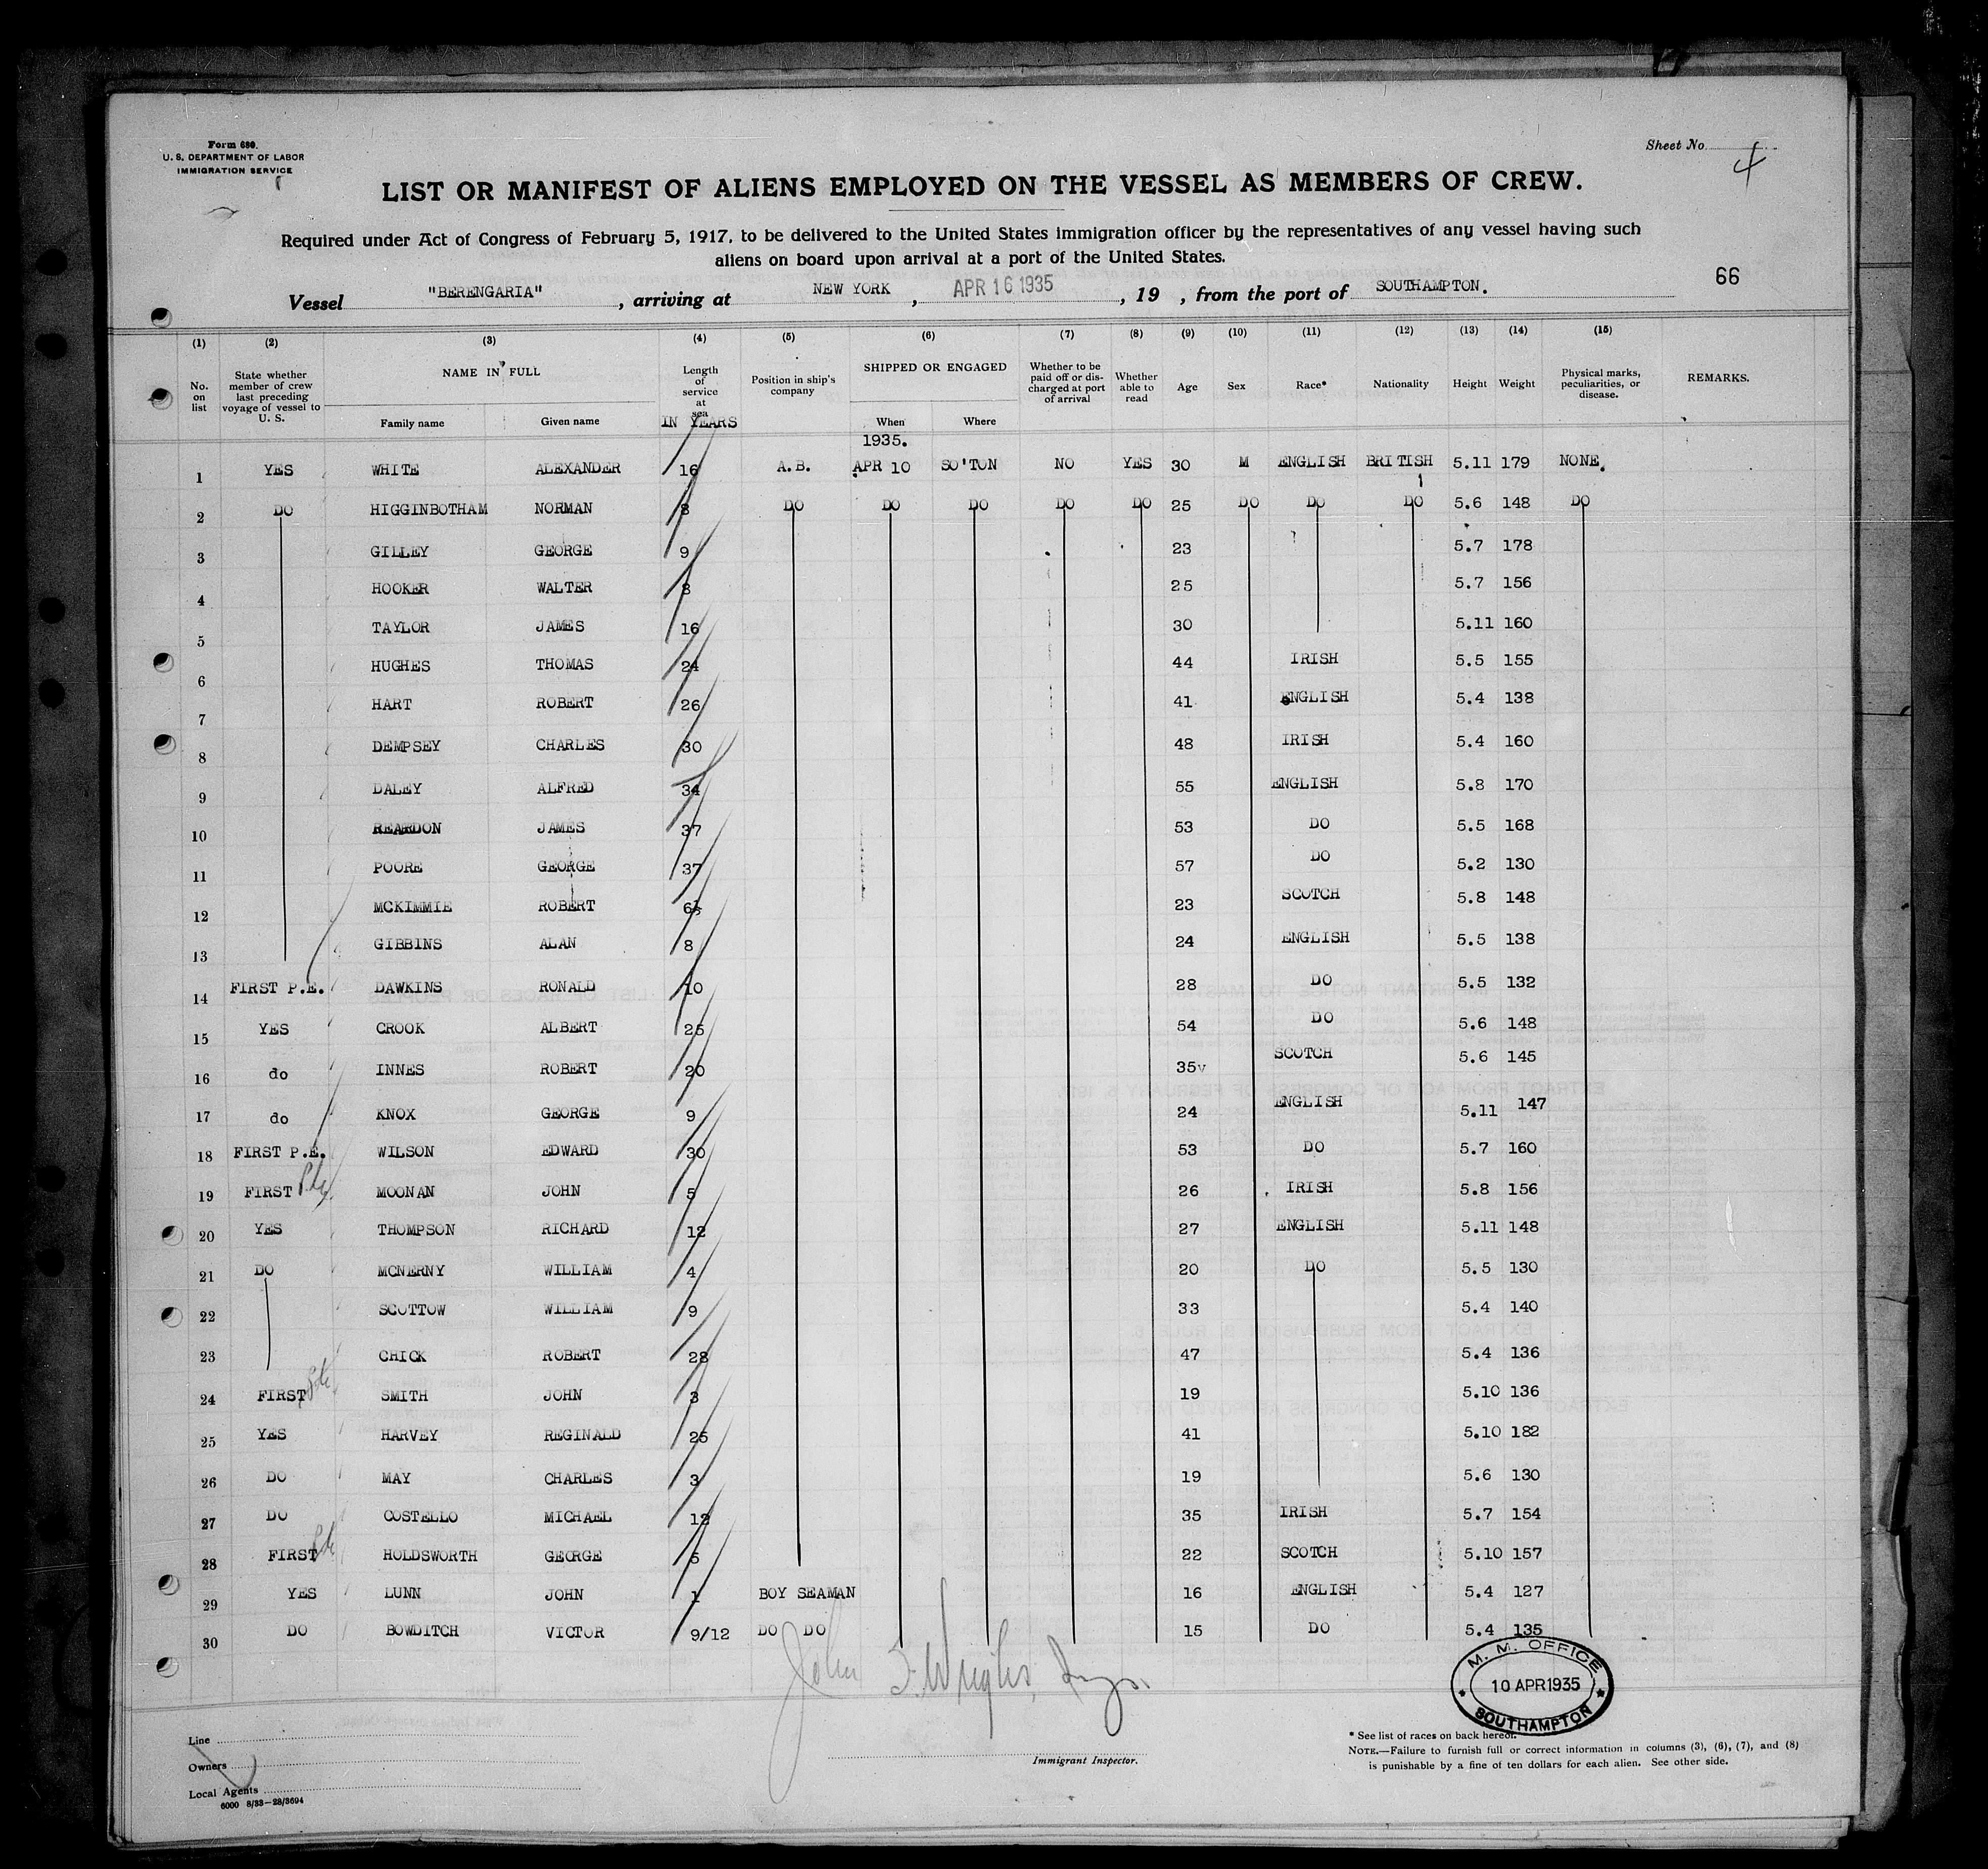 Form 680.
U. S. DEPARTMENT OF LABOR
IMMIGRATION SERVICE
Sheet No. 4
LIST OR MANIFEST OF ALIENS EMPLOYED ON THE VESSEL AS MEMBERS OF CREW.
Required under Act of Congress of February 5, 1917, to be delivered to the United States immigration officer by the representatives of any vessel having such
aliens on board upon arrival at a port of the United States.
66
Vessel "BERENGARIA", arriving at NEW YORK, APR 16 1935, 19 , from the port of SOUTHAMPTON.
(1) (2) (3) (4) (5) (6) (7) (8) (9) (10) (11) (12) (13) (14) (15)
No. on list State whether member of crew last preceding voyage of vessel to U. S. NAME IN FULL Family name Given name Length of service at sea IN YEARS Position in ship's company SHIPPED OR ENGAGED When Where Whether to be paid off or discharged at port of arrival Whether able to read Age Sex Race* Nationality Height Weight Physical marks, peculiarities, or disease. REMARKS.
1935.
1 YES WHITE ALEXANDER 16 A.B. APR 10 SO'TON NO YES 30 M ENGLISH BRITISH 5.11 179 NONE.
2 DO HIGGINBOTHAM NORMAN 8 DO DO DO DO DO 25 DO DO DO 5.6 148 DO
3 GILLEY GEORGE 9 23 5.7 178
4 HOOKER WALTER 8 25 5.7 156
5 TAYLOR JAMES 16 30 5.11 160
6 HUGHES THOMAS 24 44 IRISH 5.5 155
7 HART ROBERT 26 41 ENGLISH 5.4 138
8 DEMPSEY CHARLES 30 48 IRISH 5.4 160
9 DALEY ALFRED 34 55 ENGLISH 5.8 170
10 REARDON JAMES 37 53 DO 5.5 168
11 POORE GEORGE 37 57 DO 5.2 130
12 MCKIMMIE ROBERT 6½ 23 SCOTCH 5.8 148
13 GIBBINS ALAN 8 24 ENGLISH 5.5 138
14 FIRST P.E. DAWKINS RONALD 10 28 DO 5.5 132
15 YES CROOK ALBERT 25 54 DO 5.6 148
16 do INNES ROBERT 20 35v SCOTCH 5.6 145
17 do KNOX GEORGE 9 24 ENGLISH 5.11 147
18 FIRST P.E. WILSON EDWARD 30 53 DO 5.7 160
19 FIRST MOONAN JOHN 5 26 IRISH 5.8 156
20 YES THOMPSON RICHARD 12 27 ENGLISH 5.11 148
21 DO MCNERNY WILLIAM 4 20 DO 5.5 130
22 SCOTTOW WILLIAM 9 33 5.4 140
23 CHICK ROBERT 28 47 5.4 136
24 FIRST SMITH JOHN 3 19 5.10 136
25 YES HARVEY REGINALD 25 41 5.10 182
26 DO MAY CHARLES 3 19 5.6 130
27 DO COSTELLO MICHAEL 12 35 IRISH 5.7 154
28 FIRST HOLDSWORTH GEORGE 5 22 SCOTCH 5.10 157
29 YES LUNN JOHN 1 BOY SEAMAN 16 ENGLISH 5.4 127
30 DO BOWDITCH VICTOR 9/12 DO DO 15 DO 5.4 135
M. M. OFFICE
10 APR 1935
SOUTHAMPTON
Line
Owners
Local Agents
6000 8/33—28/3694
Immigrant Inspector.
* See list of races on back hereof.
NOTE.—Failure to furnish full or correct information in columns (3), (6), (7), and (8)
is punishable by a fine of ten dollars for each alien. See other side.